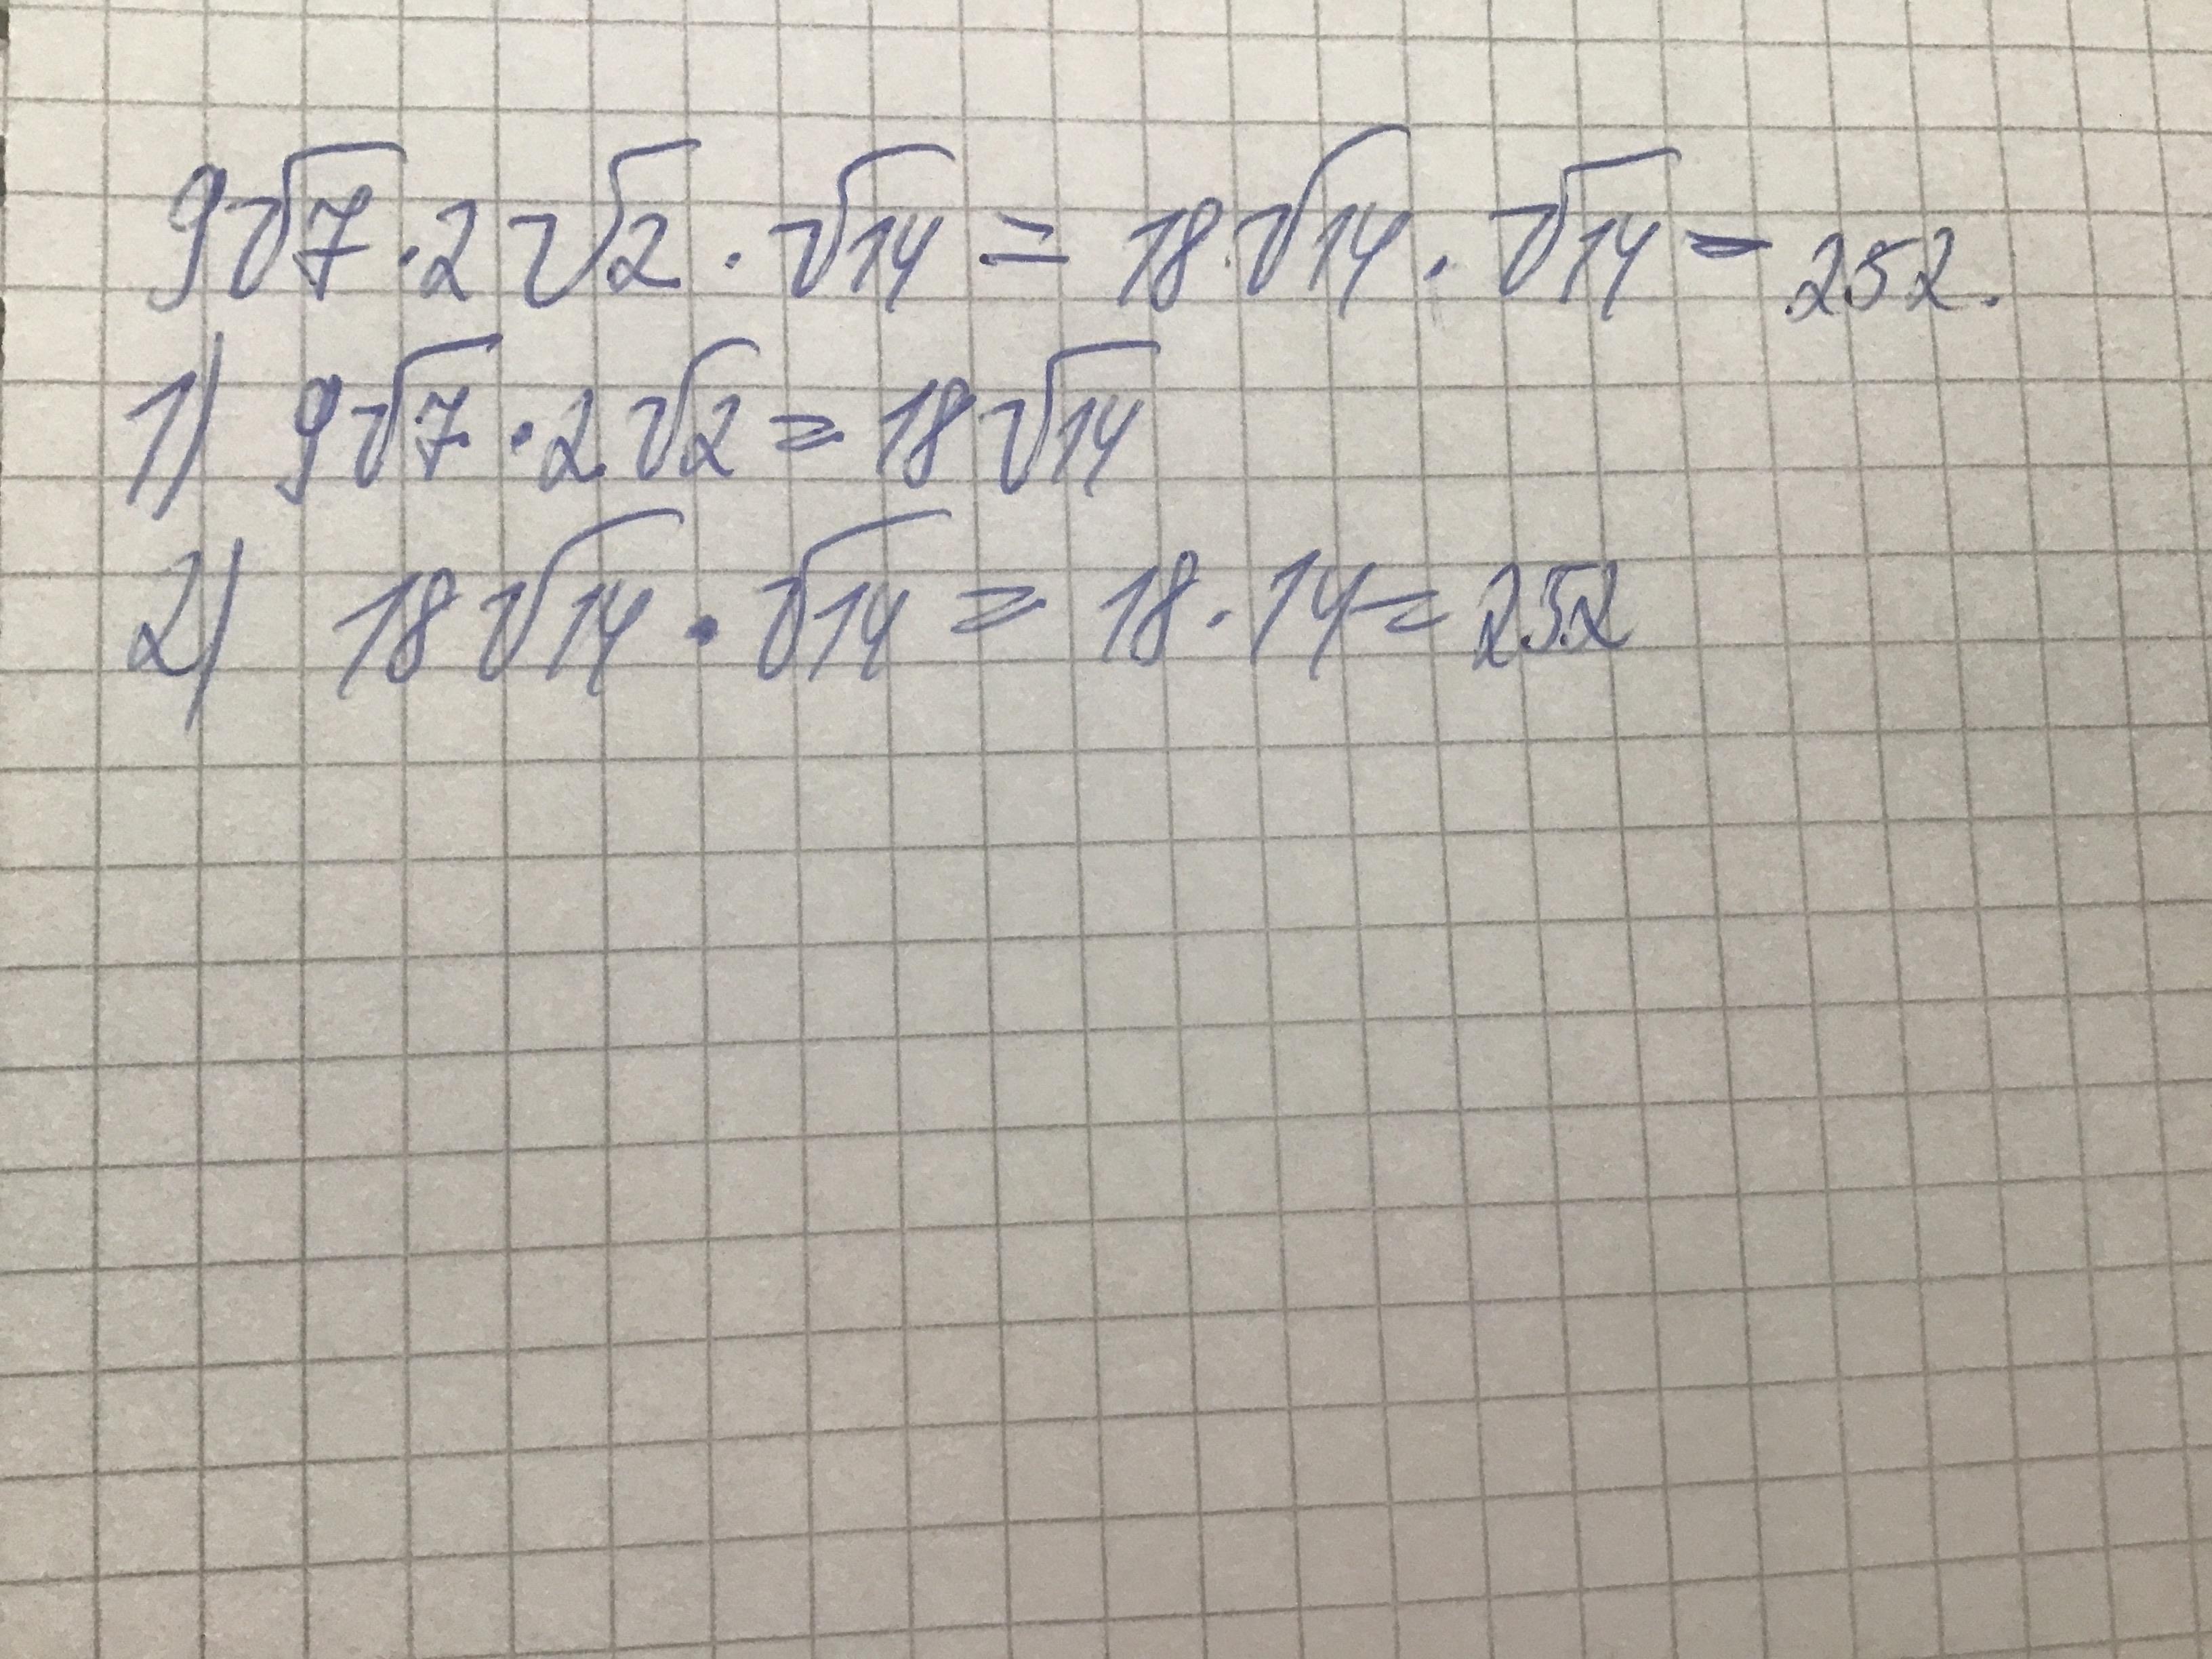 9√7 · 2√2 · √14 = 18√14 · √14 = 252.
1) 9√7 · 2√2 = 18√14
2) 18√14 · √14 = 18 · 14 = 252